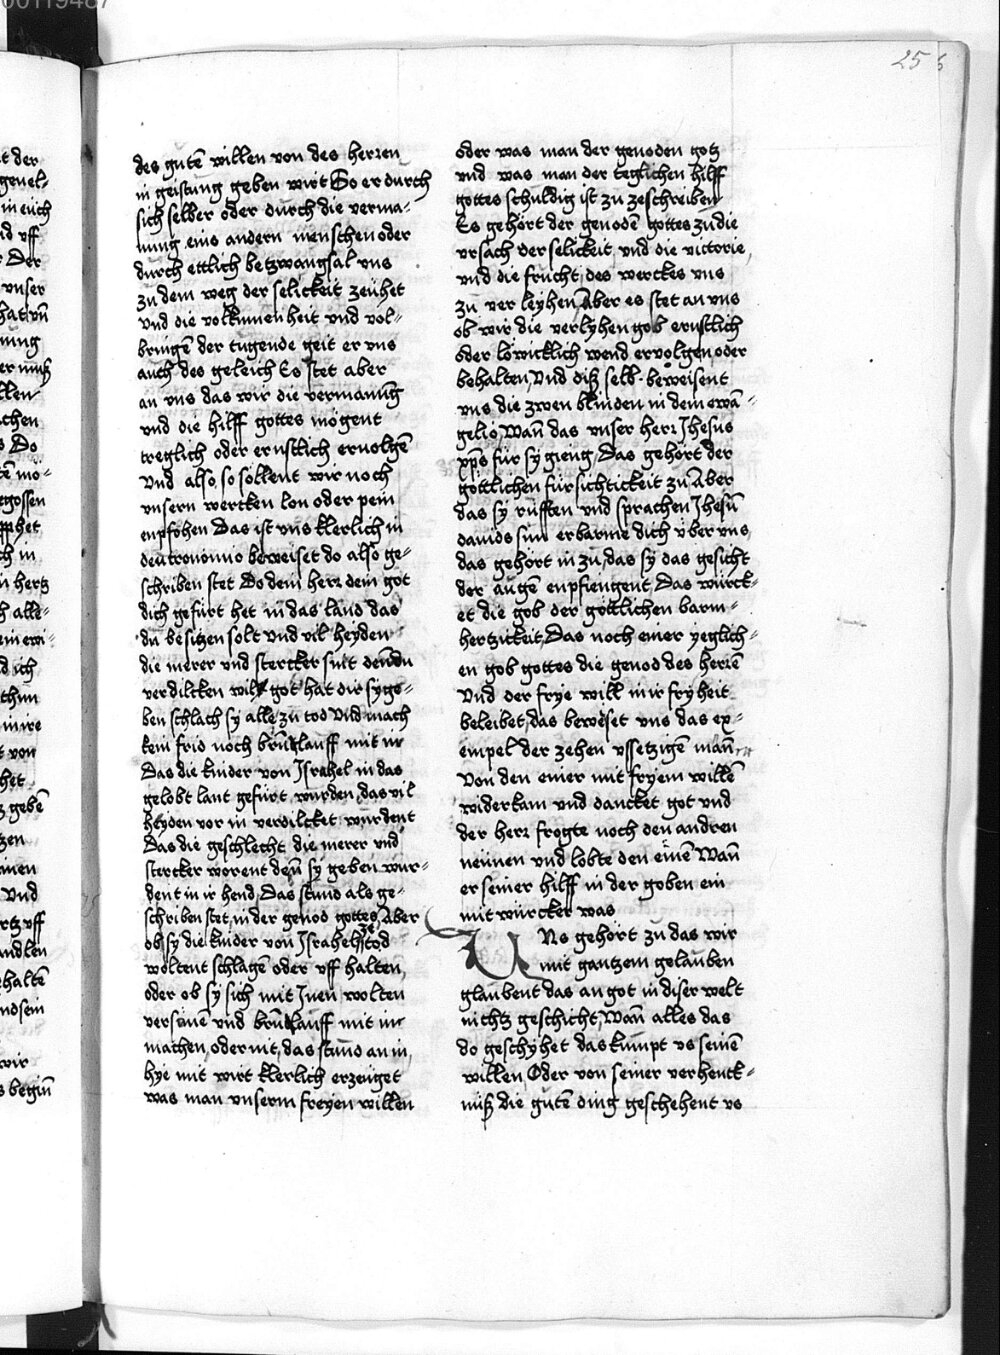 256
des guten willen von des herren
in geistung geben wirt So er durch
sich selber oder durch die verma-
nung eins andern menschen oder
durch ettlich betzwangsal vns
zu dem weg der selickeit zeuhet
vnd die volkumenheit vnd vol-
bringen der tugende geit er vns
auch des geleich Es stet aber
an vns das wir die vermanung
vnd die hilff gottes mögent
treglich oder ernstlich ervolgen
Vnd also so söllent wir noch
vnsern wercken lon oder pein
enpfohen Das ist vns klerlich in
deutronomio beweiset do also ge-
schriben stet So dein herr dein got
dich gefürt het in das land das
du besitzen solt vnd vil heyden
die merer vnd stercker sint denn du
verdilcken wil got hat dir sy ge-
ben schlach sy alle zu tod Vnd mach
kein frid noch brutlauff mit in
Das die kinder von Jsrahel in das
gelobt lant gefürt wurden das vil
heyden vor in verdilcket wurdent
Das die geschlecht die merer vnd
stercker worent denn sy geben wur-
dent in ir hend Das stund als ge-
schriben stet in der genod gottes Aber
ob sy die kinder von Jsrahel ze tod
woltent schlagen oder vff halten
oder ob sy sich mit Jnen wolten
versunen vnd brutlauff mit in
machen oder nit das stund an in
hye mit wirt klerlich erzeuget
was man vnserm freyen willen
oder was man der genoden gotz
vnd was man der teglichen hilff
gottes schuldig ist zu zeschreiben
Es gehört der genoden gottes zu die
vrsach der selickeit vnd die victorie
vnd die frucht des werckes vns
zu verleyhen Aber es stet an vns
ob wir die verlyhen gob ernstlich
oder löwicklich wend ervolgen oder
behalten Vnd diß selb beweisent
vns die zwen blinden in dem ewan-
gelio Wann das vnser herr Jhesus
xps für sy gieng Das gehört der
göttlichen fürsichtickeit zu Aber
das sy rüfften vnd sprachen Jhesu
dauids sun erbarme dich über vns
das gehört in zu das sy das gesicht
der augen enpfiengent Das würck-
et die gob der göttlichen barm-
hertzickeit Das noch einer yeglich-
en gob gottes die genod des herren
Vnd der frye will in ir fryheit
beleibet das beweiset vns das ex-
empel der zehen vssetzigen mann
Von den einer mit fryem willen
widerkam vnd dancket got vnd
der herr frogte noch den andren
neunen vnd lobte den einen Wann
er seiner hilff in der goben ein
mit würcker was
VNs gehört zu das wir
mit gantzem gelauben
glaubent das an got in diser welt
nichtz geschicht Wann alles das
do geschyhet das kumpt vs seinem
willen Oder von seiner verhenck-
niß die guten ding geschehent vs